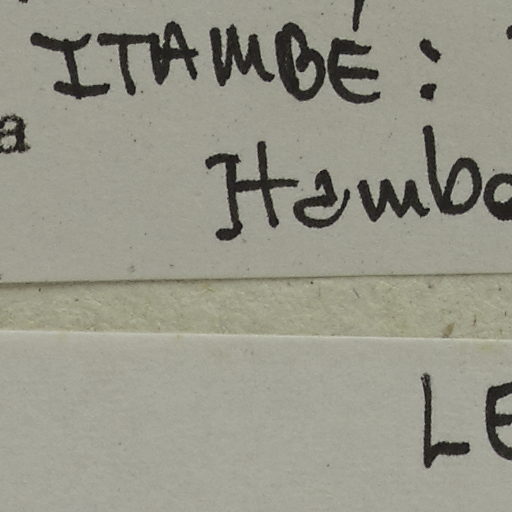 ITAMBÉ:
a
Itambo
LE